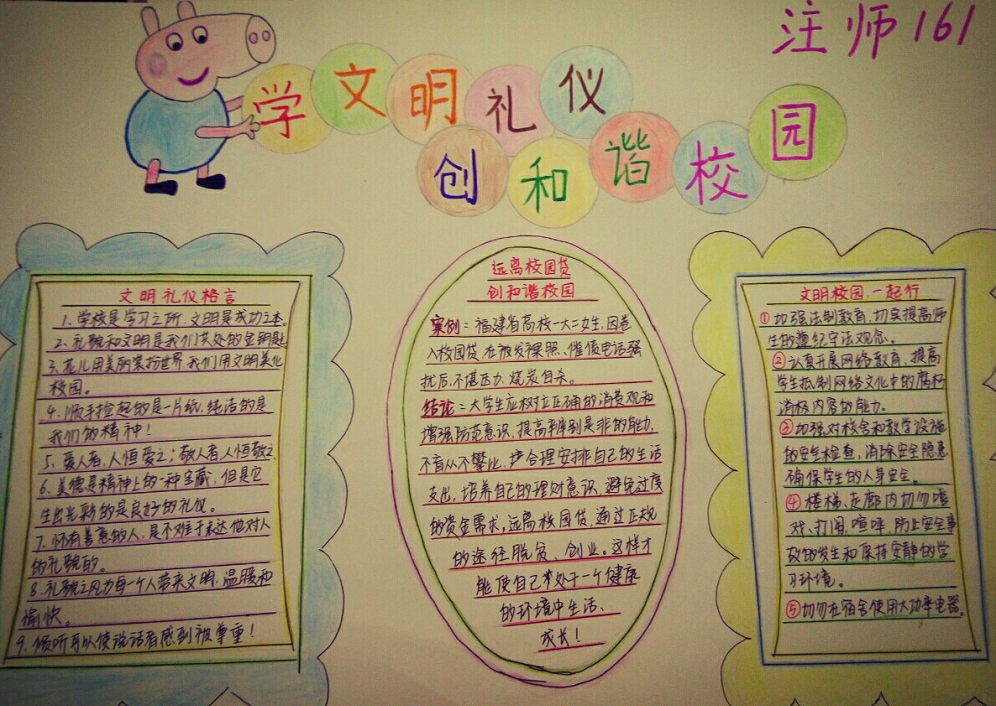 注师161
学文明礼仪
创和谐校园
文明礼仪格言
1、学校是学习之所,文明是成功之本。
2、礼貌和文明是我们共处的金钥匙
3、花儿用美丽装扮世界,我们用文明美化
校园。
4、顺手捡起的是一片纸,纯洁的是
我们的精神!
5、爱人者,人恒爱之;敬人者,人恒敬之
6、美德是精神上的一种宝藏,但是它
生出光彩的是良好的礼仪。
7、怀有善意的人,是不难于表达他对人
的礼貌的。
8、礼貌之风为每个人带来文明、温暖和
愉快。
9、倾听可以使说话者感到被尊重!
远离校园贷
创和谐校园
案例:福建省高校一大二女生,因卷
入校园贷,在被发裸照、催债电话骚
扰后,不堪压力,烧炭自杀。
结论:大学生应树立正确的消费观和
增强防范意识,提高辨别是非的能力,
不盲从不攀比,合理安排自己的生活
支出,培养自己的理财意识,避免过度
的资金需求,远离校园贷,通过正规
的途经脱贫、创业。这样才
能使自己处于一个健康
的环境中生活、
成长!
文明校园,一起行
①加强法制教育,切实提高师
生的遵纪守法观念。
②认真开展网络教育、提高
学生抵制网络文化中的腐朽
消极内容的能力。
③加强对校舍和教学设施
的安全检查,消除安全隐患
确保学生的人身安全。
④楼梯、走廊内切勿嘻
戏、打闹、喧哗,防止安全事
故的发生和保持安静的学
习环境。
⑤切勿在宿舍使用大功率电器。